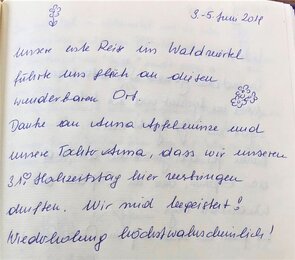 3.-5. Juni 2018
unsere erste Reise ins Waldviertel
führte uns gleich an diesen
wunderbaren Ort.
Danke an Anna Apfelminze und
unsere Tochter Anna, dass wir unseren
31. Hochzeitstag hier verbringen
durften. Wir sind begeistert!
Wiederholung höchstwahrscheinlich!